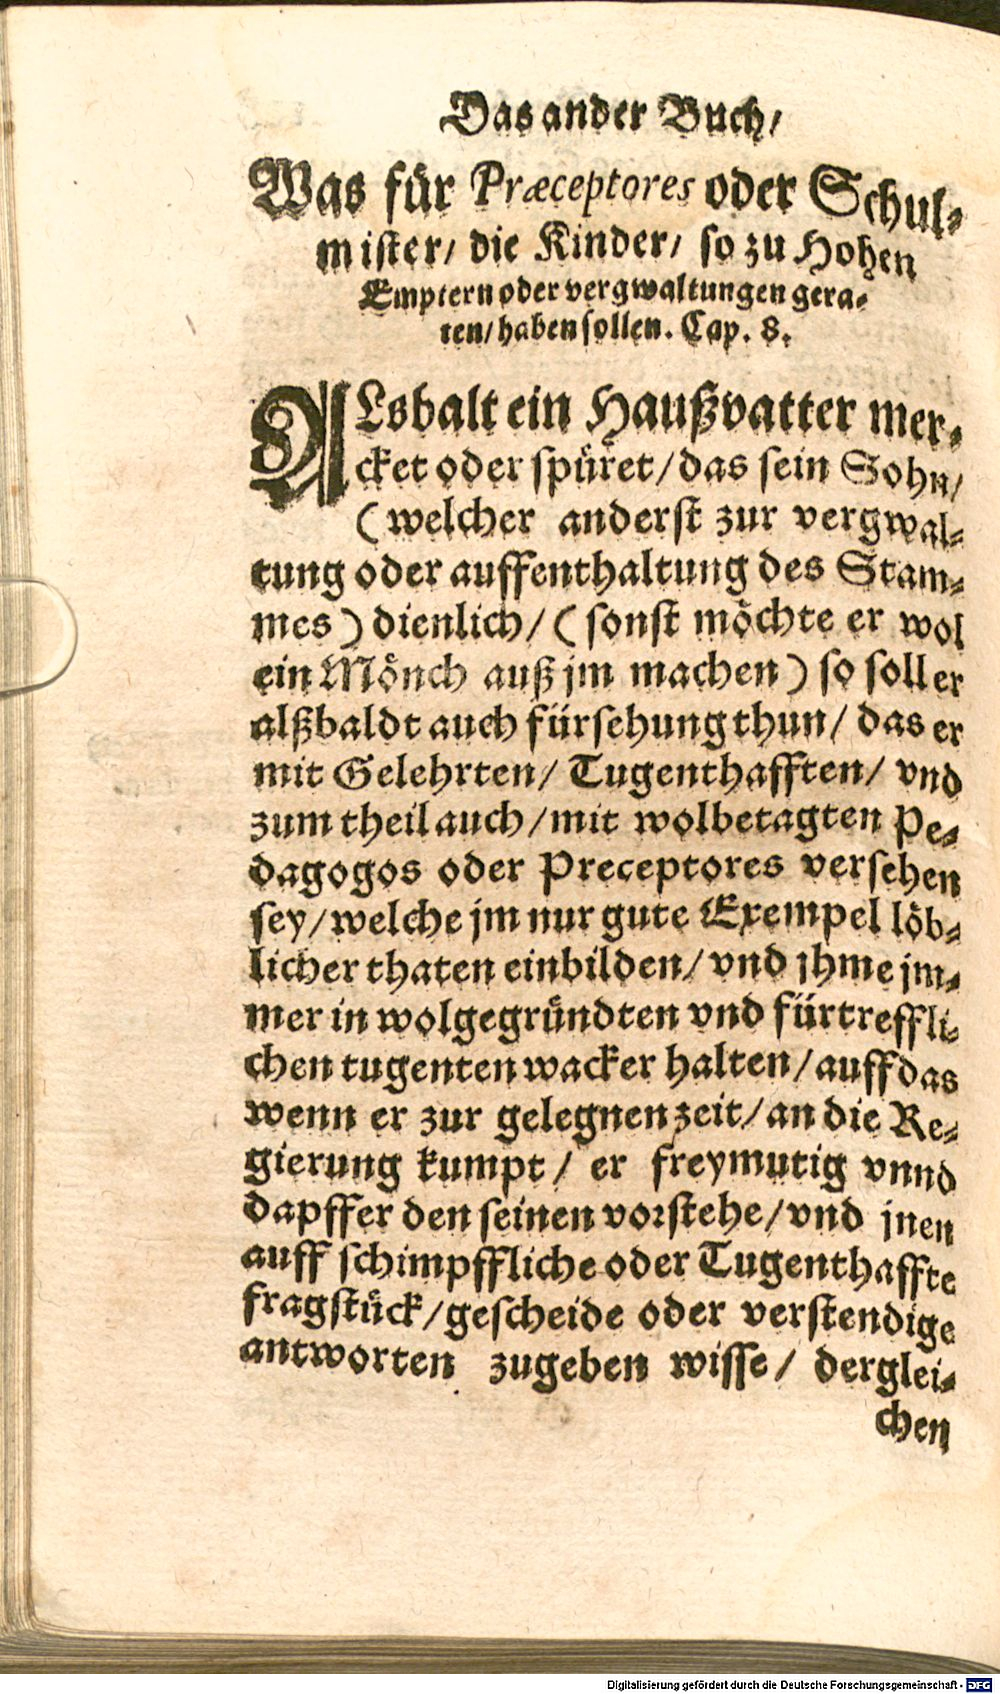 Das ander Buch/
Was für Præceptores oder Schul-
mister/ die Kinder/ so zu Hohen
Emptern oder vergwaltungen gera-
ten/ haben sollen. Cap. 8.
ALsbalt ein Haußvatter mer-
cket oder spüret/ das sein Sohn/
(welcher anderst zur vergwal-
tung oder auffenthaltung des Stam-
mes) dienlich/ (sonst möchte er wol
ein Mönch auß jm machen) so soll er
alßbaldt auch fürsehung thun/ das er
mit Gelehrten/ Tugenthafften/ vnd
zum theil auch/ mit wolbetagten Pe-
dagogos oder Preceptores versehen
sey/ welche jm nur gute Exempel löb-
licher thaten einbilden/ vnd jhme jm-
mer in wolgegründten vnd fürtreffli-
chen tugenten wacker halten/ auff das
wenn er zur gelegnen zeit/ an die Re-
gierung kumpt/ er freymutig vnnd
dapffer den seinen vorstehe/ vnd jnen
auff schimpffliche oder Tugenthaffte
fragstück/ gescheide oder verstendige
antworten zugeben wisse/ derglei-
chen
Digitalisierung gefördert durch die Deutsche Forschungsgemeinschaft - DFG